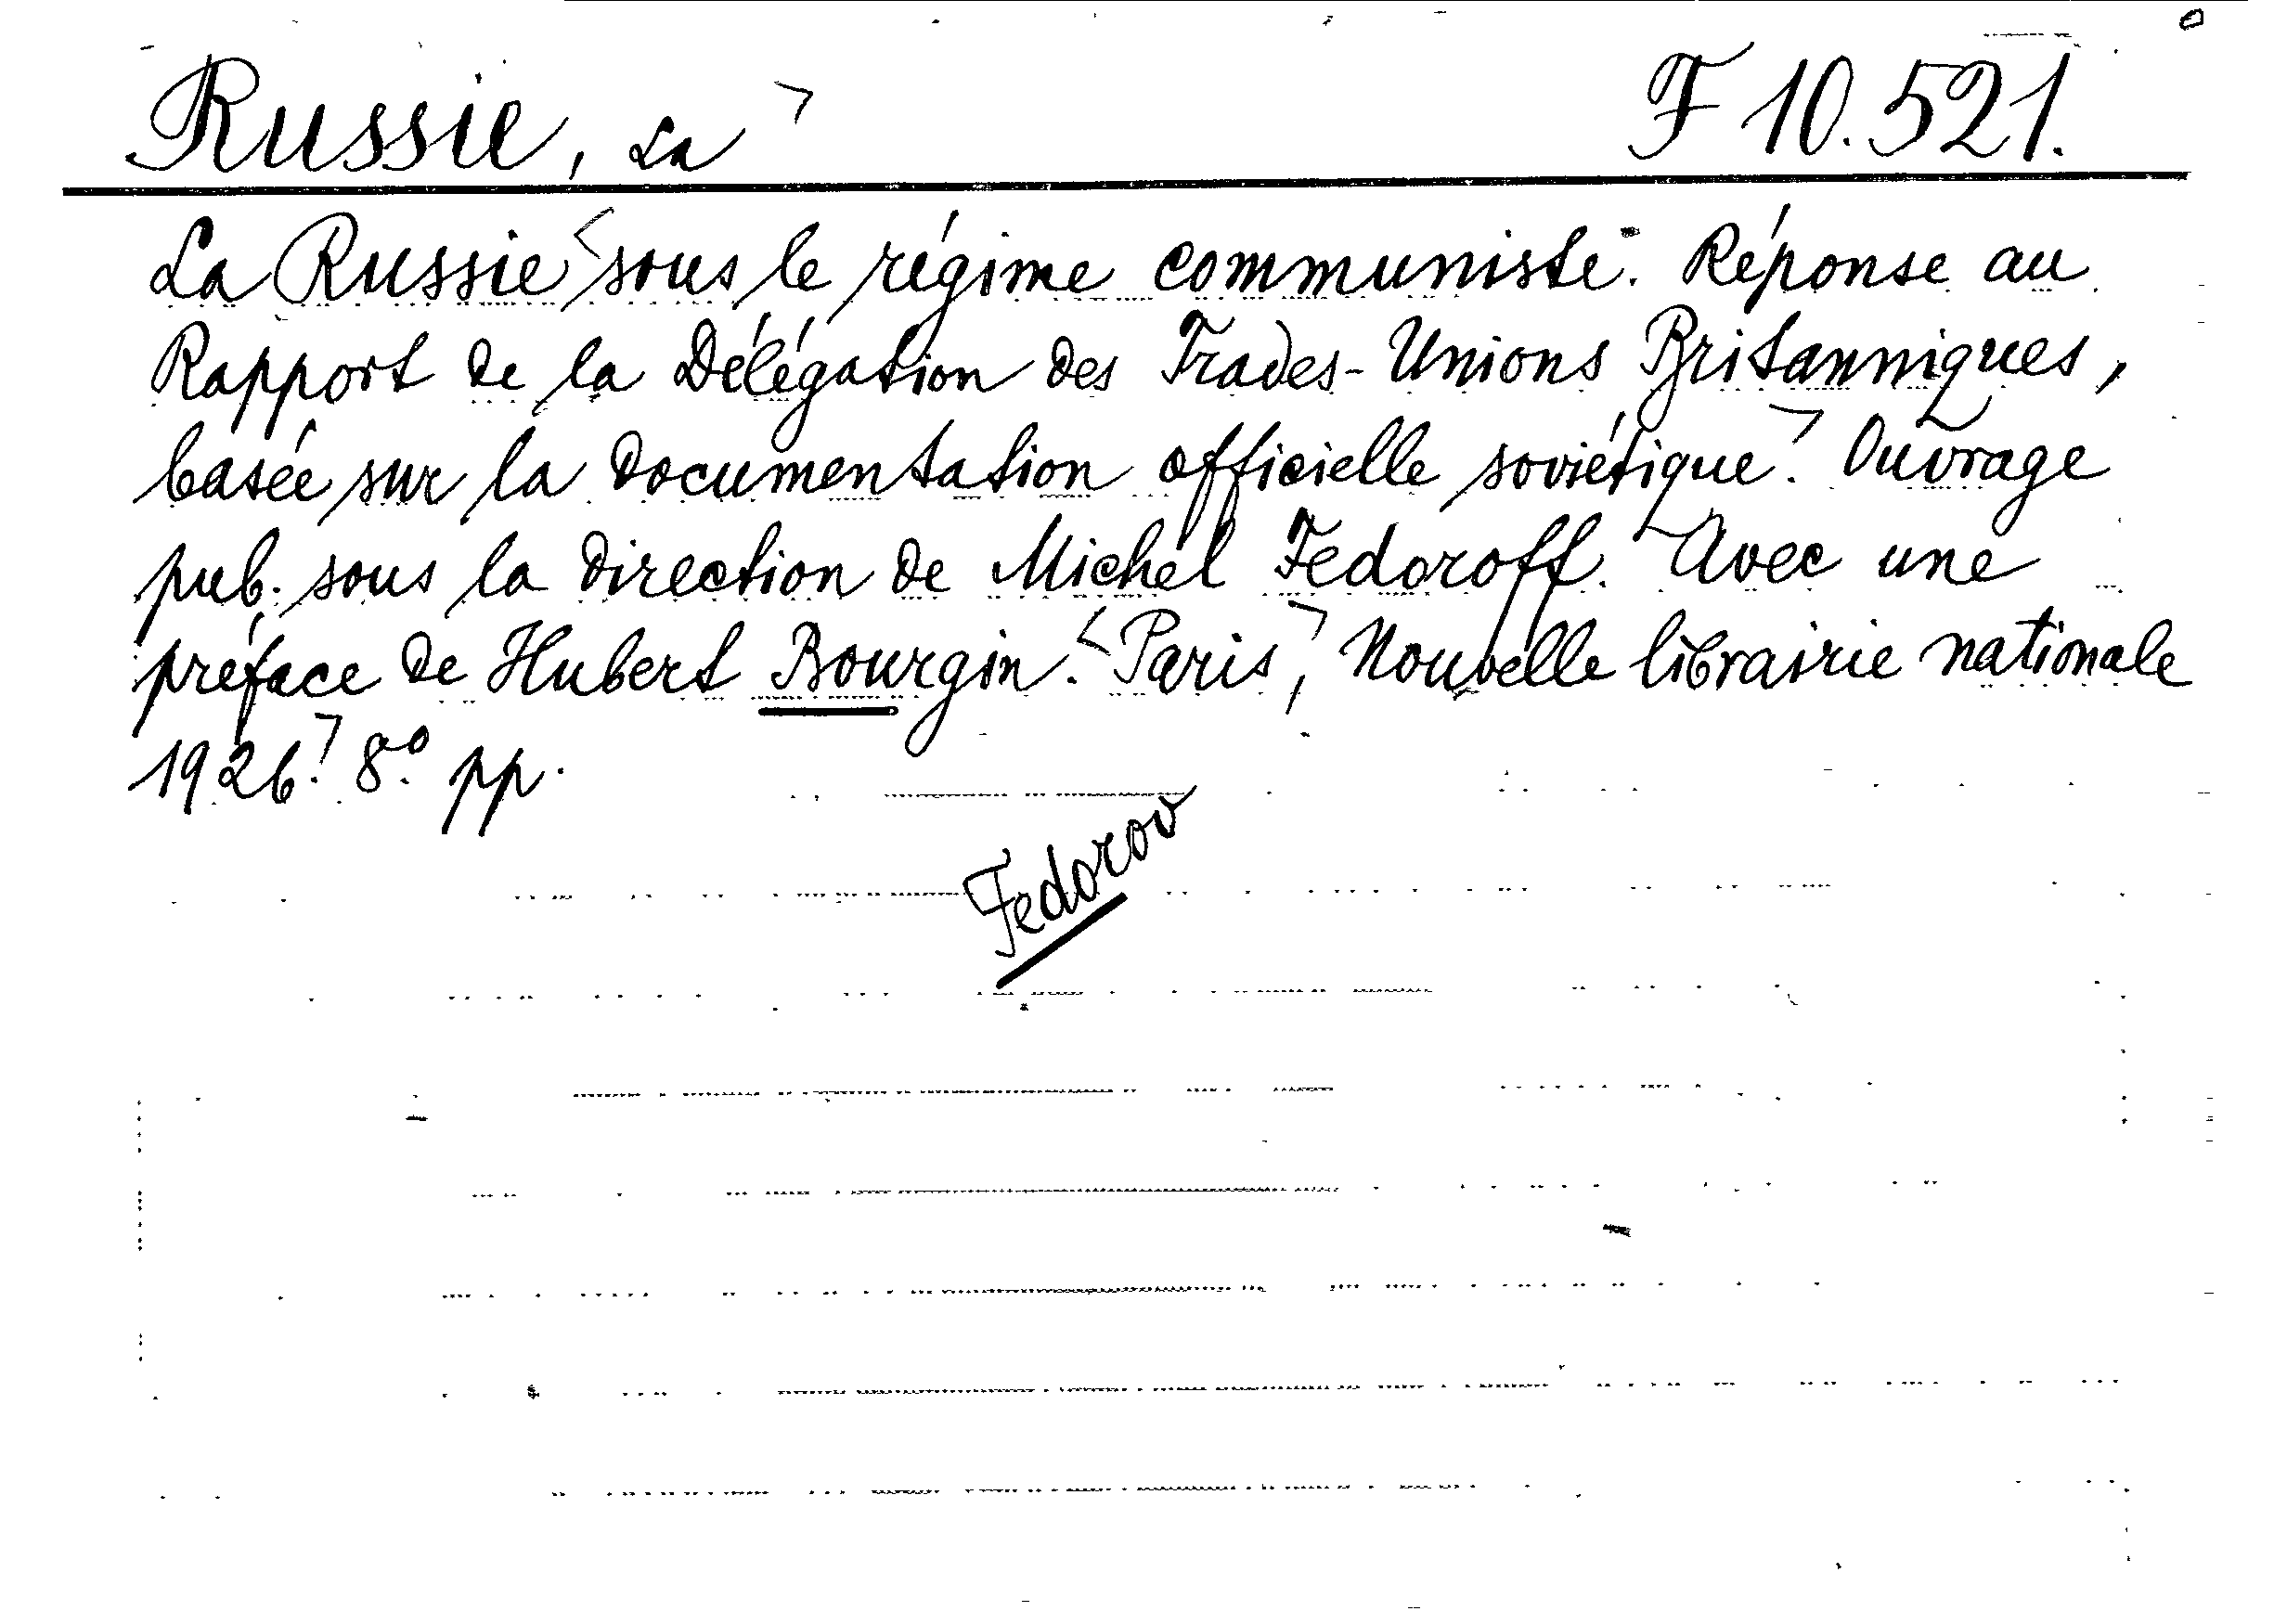 Russie, La F 10.521.
La Russie sous le régime communiste. Réponse au
Rapport de la Délégation des Trades-Unions Britanniques,
basée sur la documentation officielle soviétique. Ouvrage
pub. sous la direction de Michel Fedoroff. Avec une
préface de Hubert Bourgin. Paris, Nouvelle librairie nationale
1926. 8º pp.
Fedorov